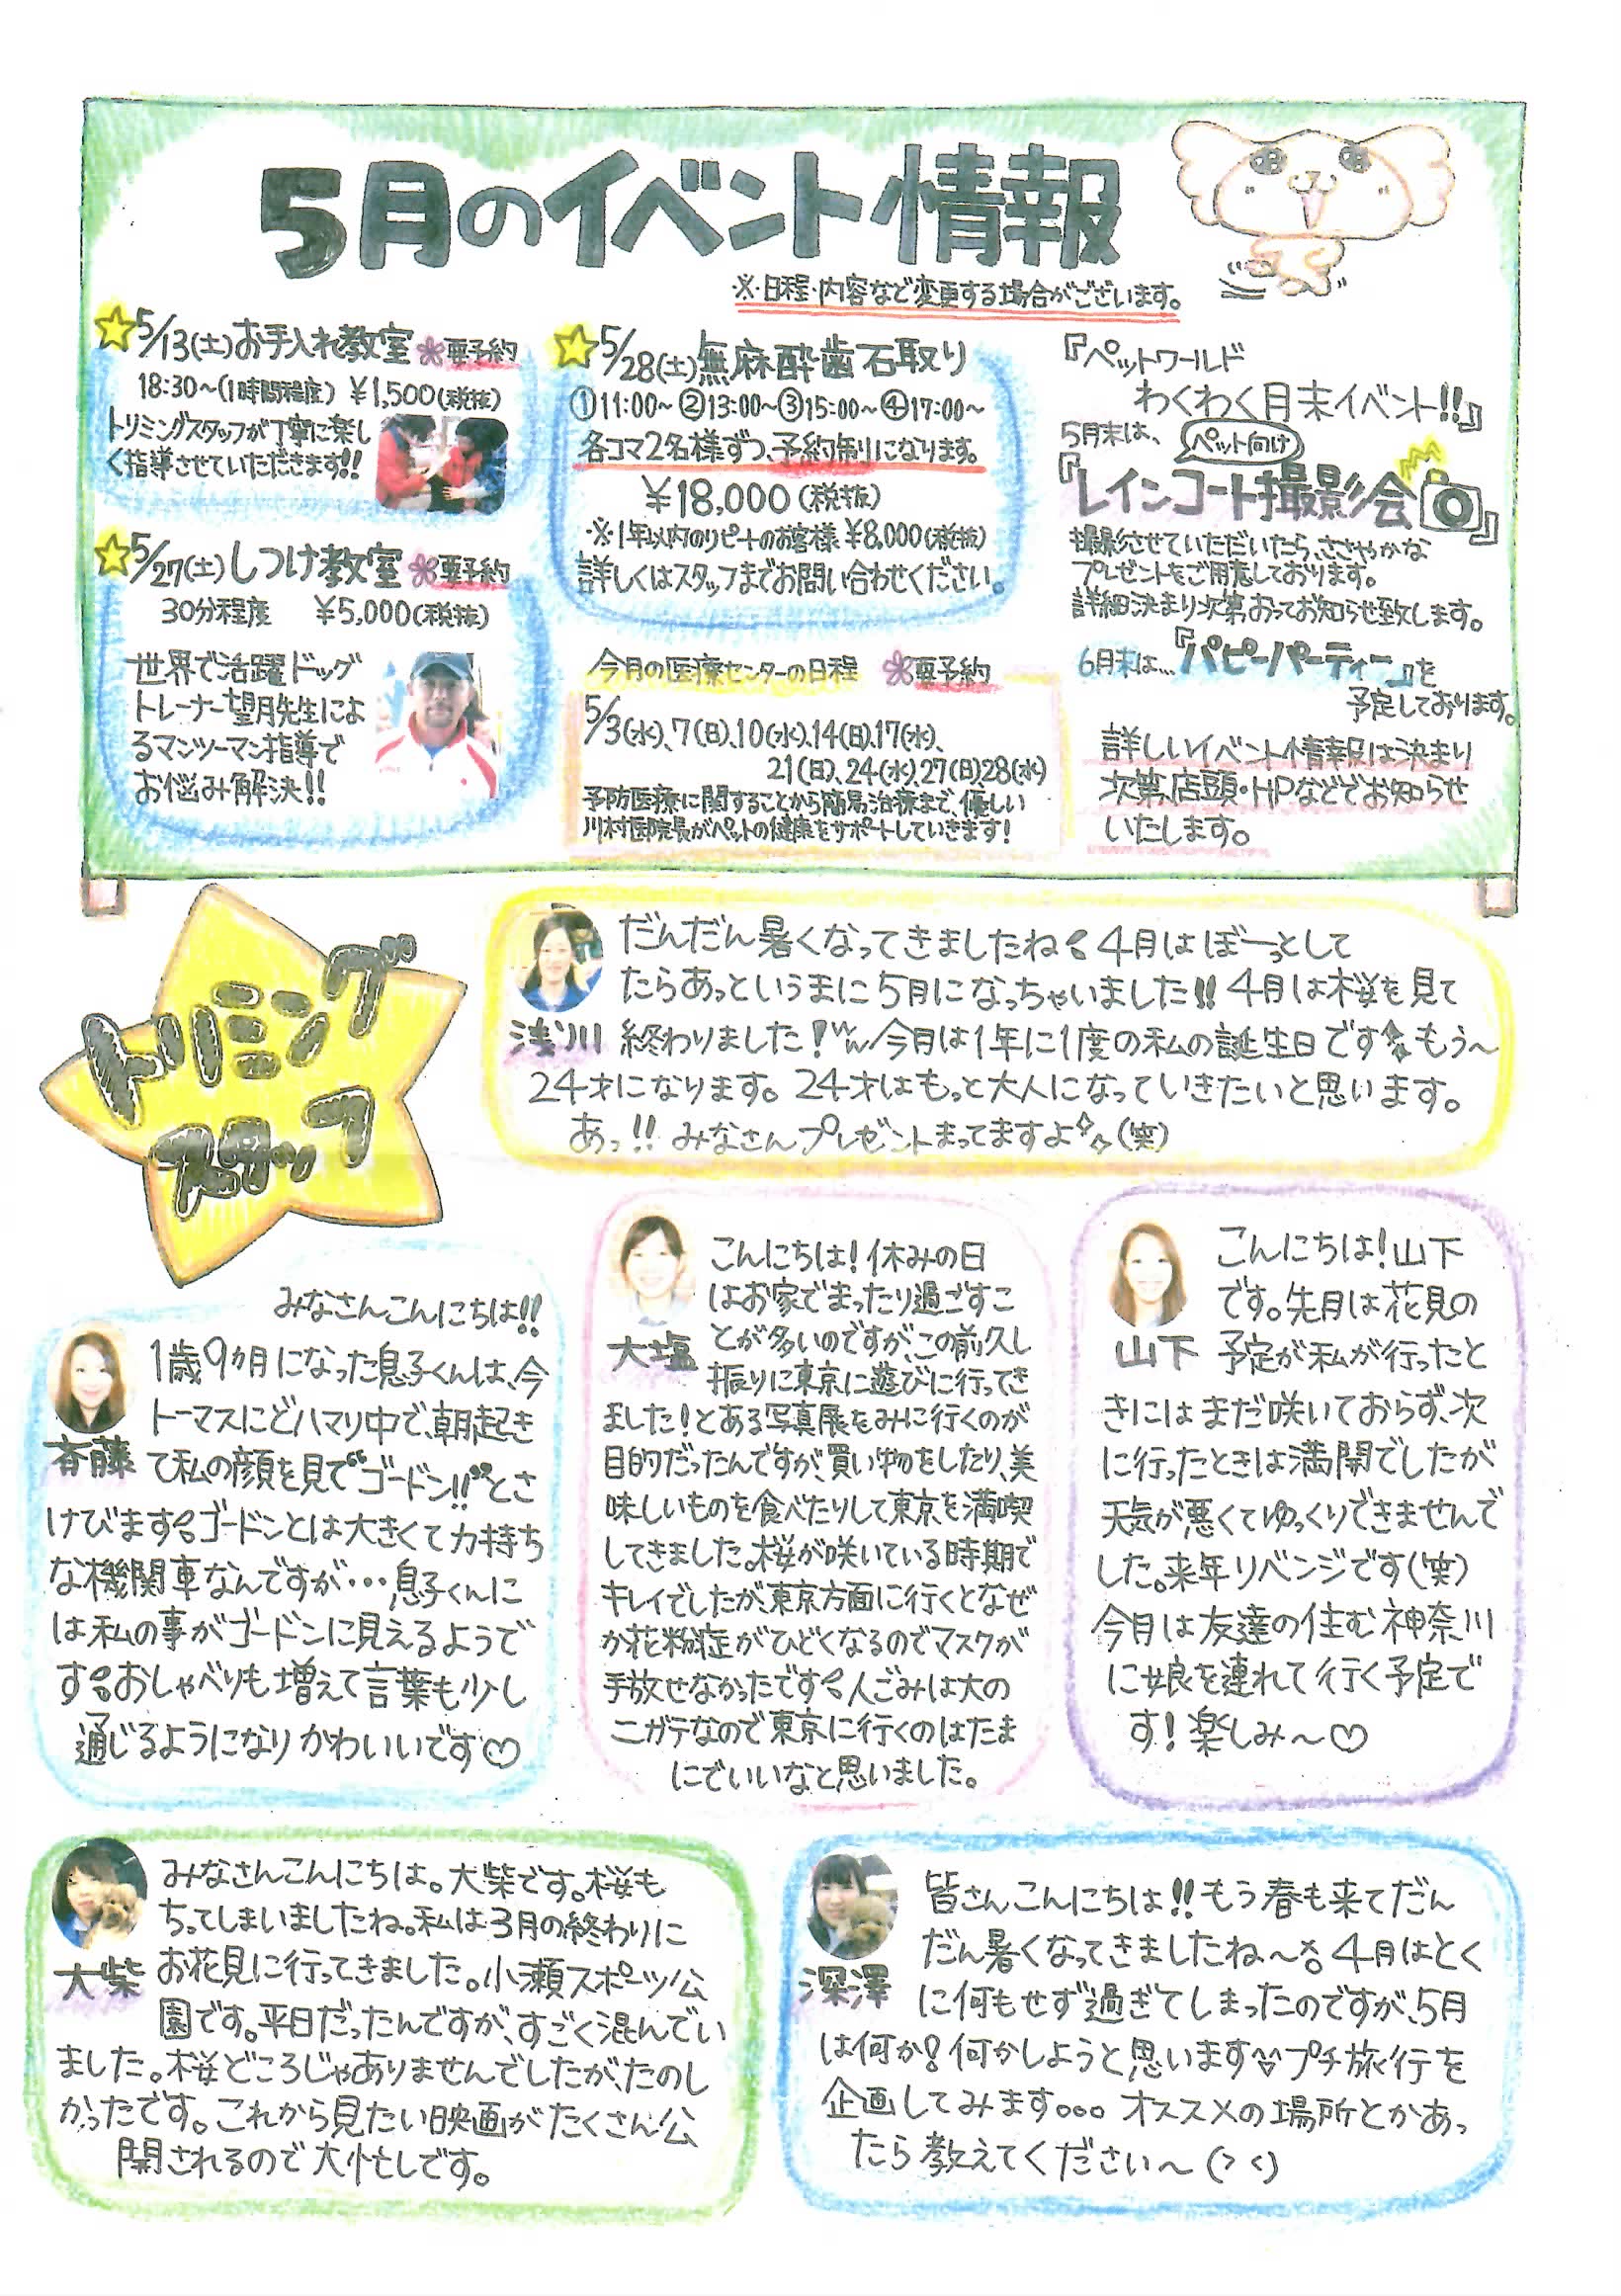 5月のイベント情報
※日程・内容など変更する場合がございます。
5/13(土)お手入れ教室 要予約
18:30~(1時間程度) ¥1,500(税抜)
トリミングスタッフが丁寧に楽し
く指導させていただきます!!
5/27(土)しつけ教室 要予約
30分程度 ¥5,000(税抜)
世界で活躍ドッグ
トレーナー望月先生によ
るマンツーマン指導で
お悩み解決!!
5/28(土)無麻酔歯石取り
①11:00~②13:00~③15:00~④17:00~
各コマ2名様ずつ、予約制になります。
¥18,000(税抜)
※1年以内のリピートのお客様¥8,000(税抜)
詳しくはスタッフまでお問い合わせください。
今月の医療センターの日程 要予約
5/3(水)、7(日)、10(水)、14(日)、17(水)、
21(日)、24(水)、27(日)28(水)
予防医療に関することから簡易治療まで、優しい
川村医院長がペットの健康をサポートしていきます!
『ペットワールド
わくわく月末イベント!!』
5月末は、 ペット向け
『レインコート撮影会』
撮影させていただいたら、ささやかな
プレゼントをご用意しております。
詳細決まり次第おってお知らせ致します。
6月末は…『パピーパーティー』を
予定しております。
詳しいイベント情報は決まり
次第、店頭・HPなどでお知らせ
いたします。
トリミング
スタッフ
浅川
だんだん暑くなってきましたね 4月はぼーっとして
たらあっというまに5月になっちゃいました!! 4月は桜を見て
終わりました!ww 今月は1年に1度の私の誕生日です もう~
24才になります。24才はもっと大人になっていきたいと思います。
あっ!! みなさんプレゼントまってますよ (笑)
斉藤
みなさんこんにちは!!
1歳9ヵ月になった息子くんは、今
トーマスにどハマり中で、朝起き
て私の顔を見て"ゴードン!!"とさ
けびます ゴードンとは大きくて力持ち
な機関車なんですが…息子くんに
は私の事がゴードンに見えるようで
す おしゃべりも増えて言葉も少し
通じるようになり かわいいです♡
大塩
こんにちは!休みの日
はお家でまったり過ごすこ
とが多いのですが、この前久し
振りに東京に遊びに行ってき
ました!とある写真展をみに行くのが
目的だったんですが、買い物をしたり、美
味しいものを食べたりして東京を満喫
してきました。桜が咲いている時期で
キレイでしたが、東京方面に行くとなぜ
か花粉症がひどくなるのでマスクが
手放せなかったです 人ごみは大の
ニガテなので東京に行くのはたま
にでいいなと思いました。
山下
こんにちは!山下
です。先月は花見の
予定が私が行ったと
きにはまだ咲いておらず、次
に行ったときは満開でしたが
天気が悪くてゆっくりできませんで
した。来年リベンジです(笑)
今月は友達の住む神奈川
に娘を連れて行く予定で
す!楽しみ~♡
大柴
みなさんこんにちは。大柴です。桜も
ちってしまいましたね。私は3月の終わりに
お花見に行ってきました。小瀬スポーツ公
園です。平日だったんですが、すごく混んでい
ました。桜どころじゃありませんでしたが、たのし
かったです。これから見たい映画がたくさん公
開されるので大忙しです。
深澤
皆さんこんにちは!!もう春も来てだん
だん暑くなってきましたね~ 4月はとく
に何もせず過ぎてしまったのですが、5月
は何か!何かしようと思います プチ旅行を
企画してみます。。。オススメの場所とかあっ
たら教えてください~(><)